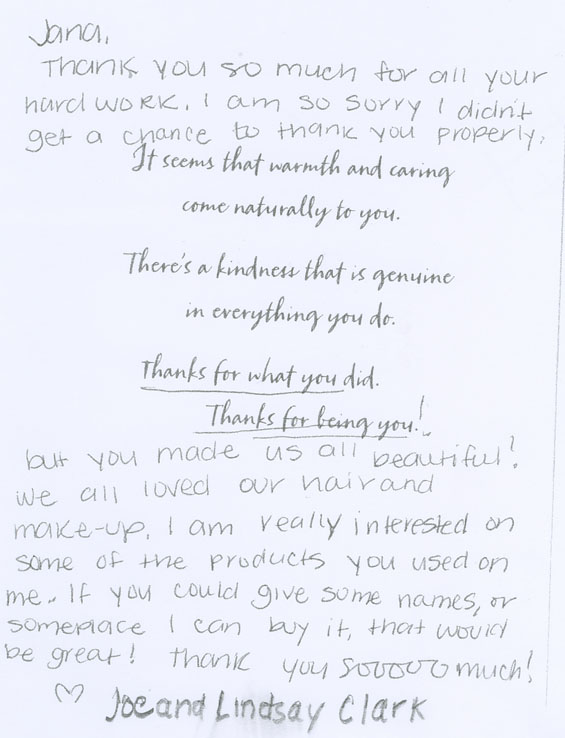 Jana,
Thank you so much for all your
hard work. I am so sorry I didn't
get a chance to thank you properly,
It seems that warmth and caring
come naturally to you.
There's a kindness that is genuine
in everything you do.
Thanks for what you did.
Thanks for being you!
but you made us all beautiful!
We all loved our hair and
make-up. I am really interested on
some of the products you used on
me.. If you could give some names, or
someplace I can buy it, that would
be great! Thank you sooooo much!
♡ Joe and Lindsay Clark